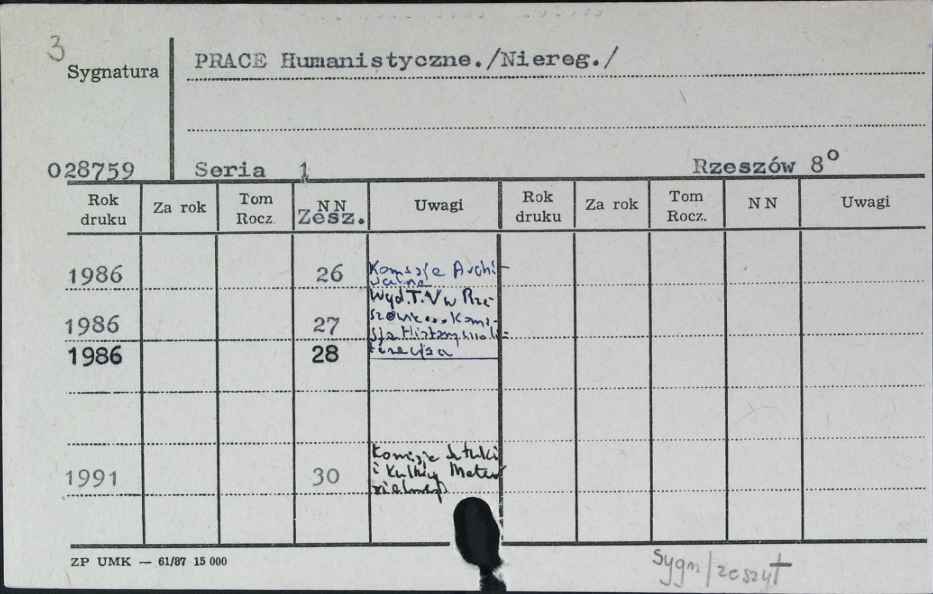 3
Sygnatura PRACE Humanistyczne./Niereg./
028759 Seria 1 Rzeszów 8°
Rok druku Za rok Tom Rocz. NN Zesz. Uwagi Rok druku Za rok Tom Rocz. NN Uwagi
1986 26 Komisja Archi-
Wyd. T.N w Rze-
1986 27
1986 28
Komisja Sztuki
1991 30 i Kultury Mate-
rialnej
ZP UMK — 61/87 15 000
Sygn/zeszyt